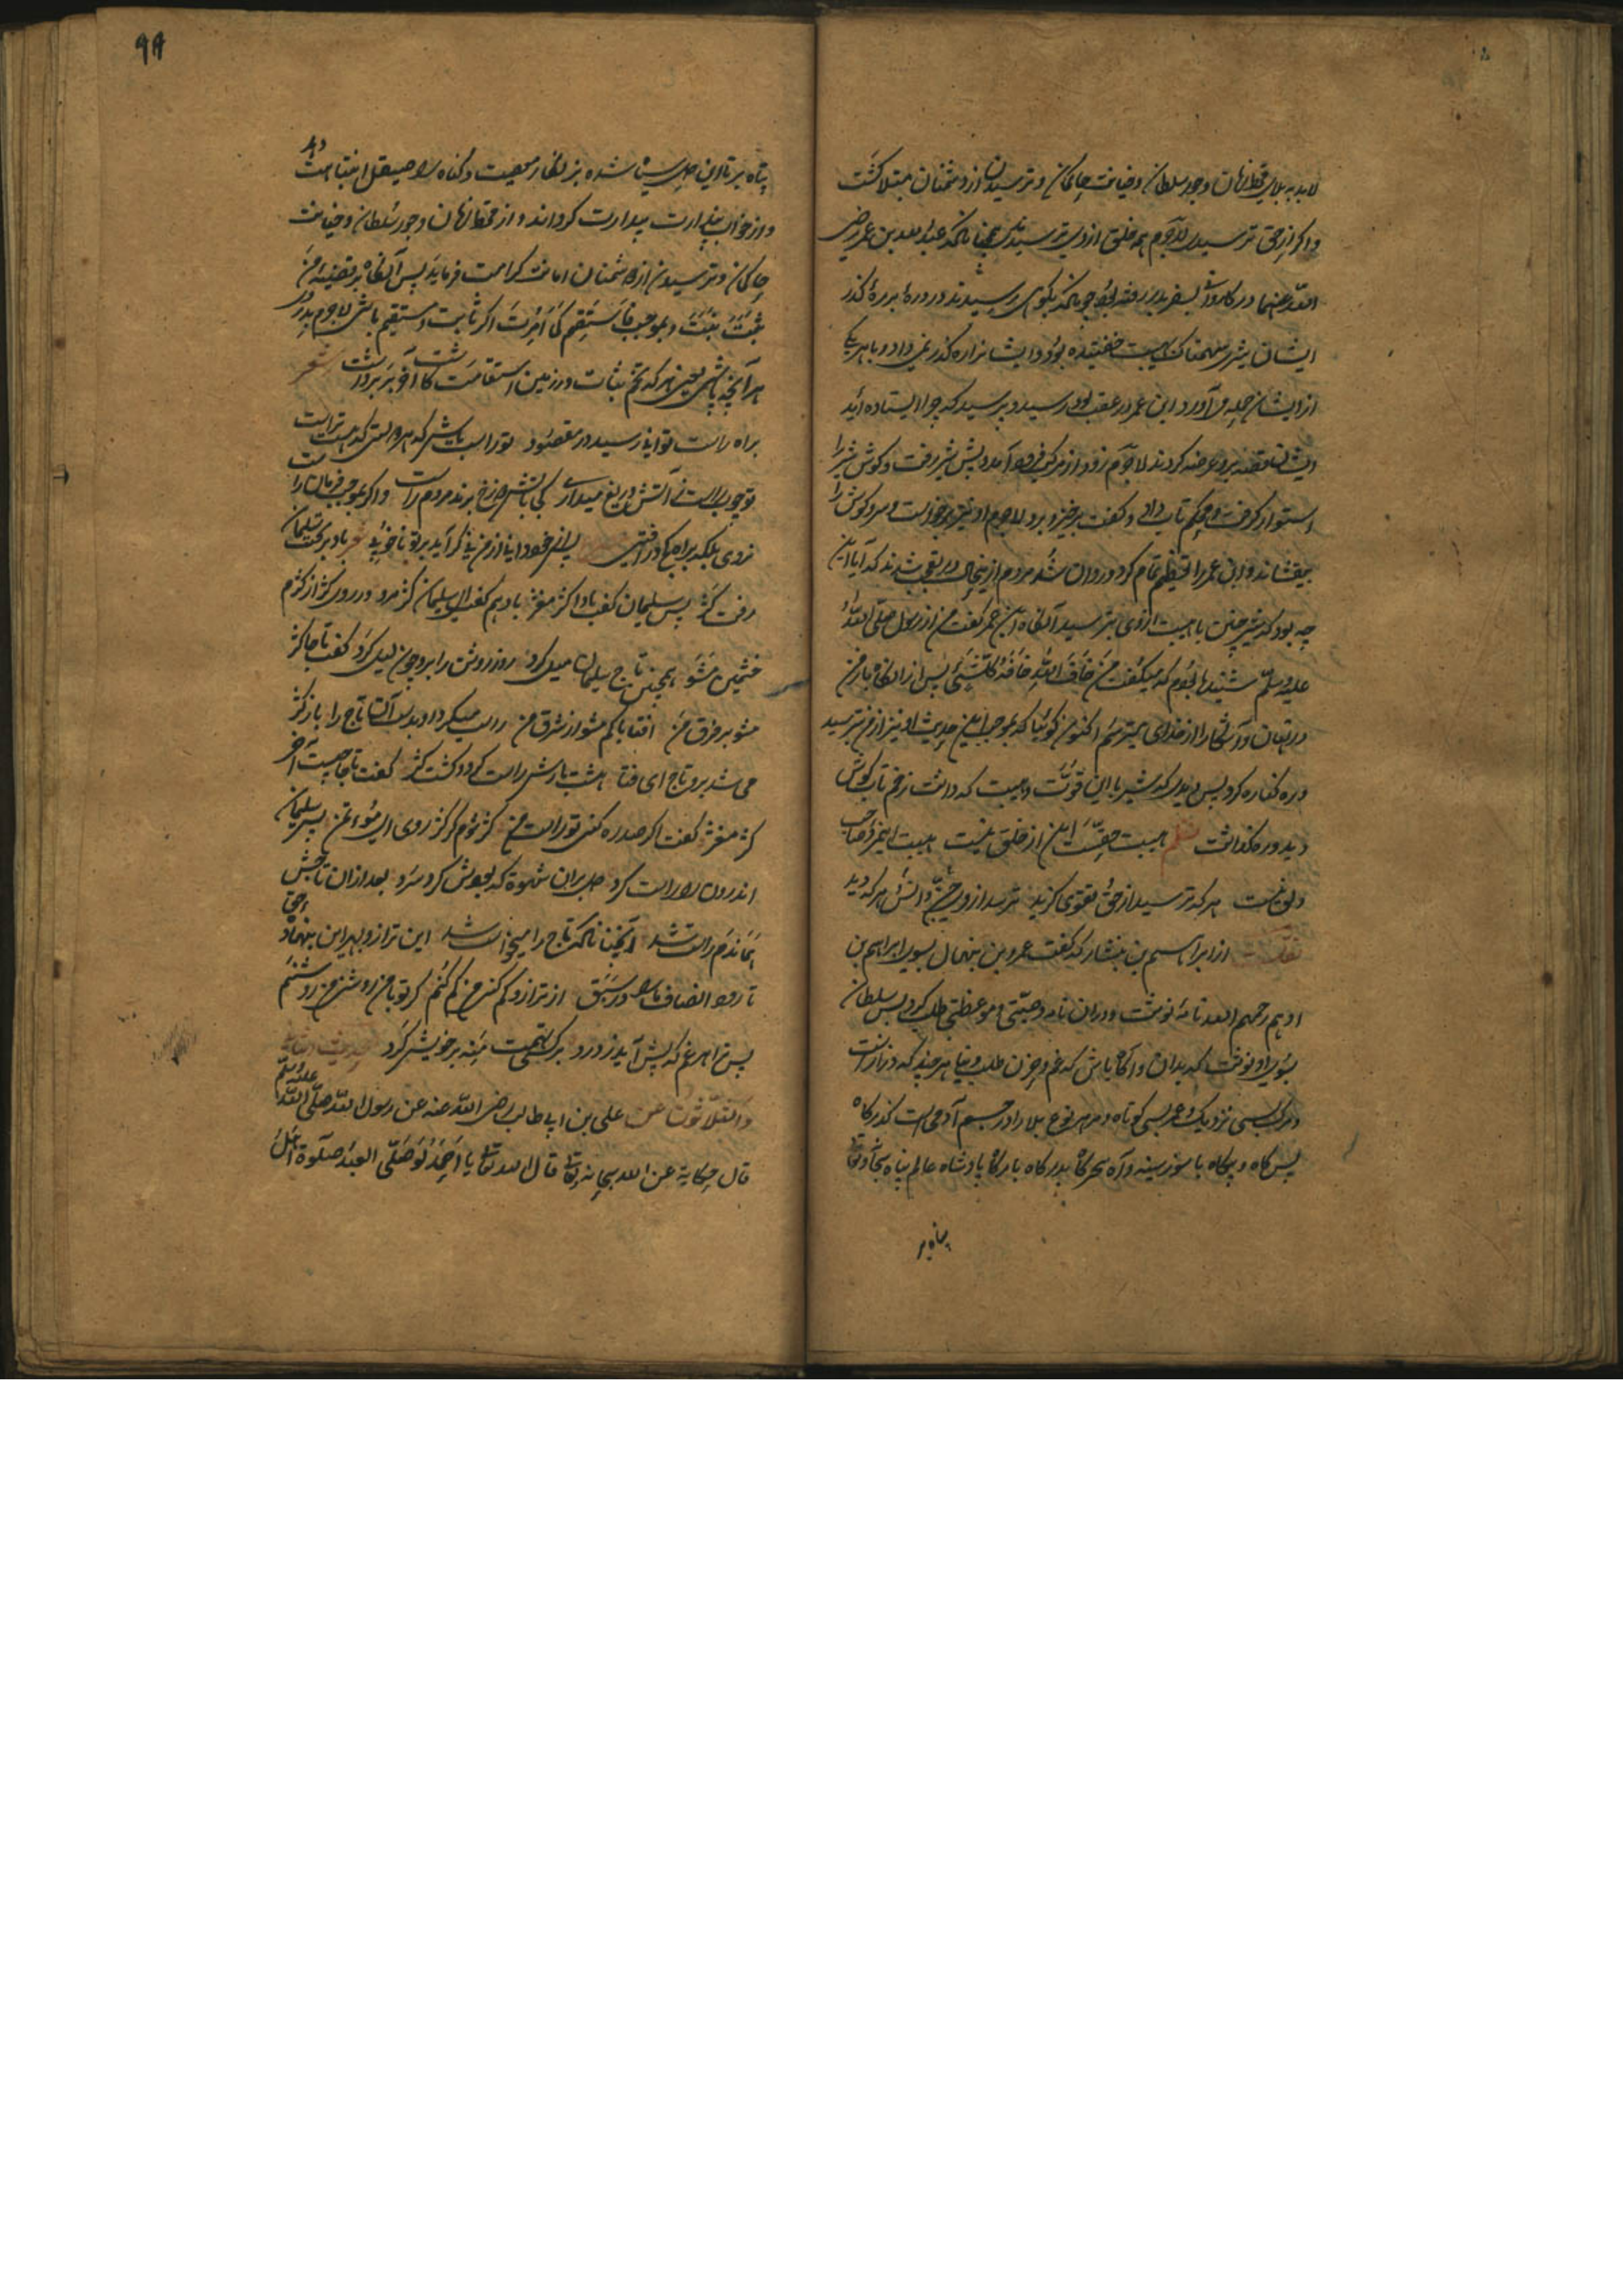 لابد به بلای قحط زمان و جور سلطان و خیانت حاکمان و ترسیدن از دشمنان مبتلا کشت
و اکر از حق ترسیدی لاجرم همه خلق از وی بترسیدندی چنانکه عبد الله بن عمر رضی
الله عنهما در کاروان بسفر بدر رفته بود چونکه بکوهی رسیدند و در دره بر ره کذر
ایشان شیری سهمناک با هیبت خفتیده بود و ایشانرا ره کذر نمی داد و با هر یکی
از ایشان حمله می آورد ابن عمر در عقب بود رسید و پرسید که چرا ایستاده اید
ایشان قصه برو عرضه کردند لاجرم زود از مرکب فرود آمد و پیش شیر رفت و کوش شیر را
استوار کرفت و محکم تاب داد و کفت برخیز و برو لاجرم او نیز برخواست و سر و کوش را
بیفشاند و ابن عمر را تعظیم تمام کرد و روان شد مردم ازین حال در تعجب شدند که آیا این
چه بود که شیر چنین با هیبت از وی بترسید آنکاه ابن عمر کفت من از رسول صلی الله
علیه وسلم شنیده بودم که میکفت من خاف الله خافه کل شیئ پس از آنکاه باز من
در نهان و آشکارا از خدای میترسم اکنون کوئیا که بموجب این حدیث او نیز از من بترسید
و ره کناره کرد پس دیدی که شیر با این قوت و هیبت که داشت زخم تاب کوش
دید و ره کذاشت نظم هیبت حقست این از خلق نیست هیبت این مرد صاحب
دلق نیست هر که ترسید از حق و تقوی کزید ترسد از وی جن و انس و هر که دید
نقلست از ابراهیم بن بشار که کفت عمرو بن منهال بسوی ابراهیم بن
ادهم رحمهم الله نامه نوشت و در ان نامه وصیتی و موعظتی طلب کرد پس سلطان
بسوی او نوشت که بدان و آکاه باش که غم و حزن طلب دنیا هر چند که درازست
و مرک بسی نزدیک و عمر بسی کوتاه و مر هر نوع بلا را در جسم آدمی است کذرکاه
پس کاه و بیکاه با سوز سینه و آه سحرکاه بدرکاه بارکاه پادشاه عالم پناه سبحانه و تعالی
پناه بر
۹۹
پناه بر تا این دل سیاه شده بزنکار معصیت و کناه را صیقل انتباهت دهد
و از خواب پندارت بیدارت کرداند و از قحط زمان و جور سلطان و خیانت
حاکمان و ترسیدن از دشمنان امانت کرامت فرماید پس آنکاه بر قضیه من
ثبت نبت و بموجب فاستقم کما امرت اکر ثابت و مستقیم باشی لاجرم بدروی
هر آنچه پاشی یعنی هر که تخم ثبات در زمین استقامت کاشت او بر برداشت شعر
براه راست توانی رسید در مقصود تو راست باش که هر دولتی که هست تراست
تو چوب راست ز آتش دریغ میداری کجا بآتش دوزخ برند مردم راست و اکر بموجب فرمان راست
نروی بلکه براه کج در افتی پس از خود دان نه از من نیک کر آید بر تو ناخوشی شعر باد بر تخت سلیمان
رفت کژ پس سلیمان کفت بادا کژ مغژ باد هم کفت ای سلیمان کژ مرو ور روی کژ از کژم
خشمین مشو همچنین تاج سلیمان میل کرد روز روشن را برو چون لیل کرد کفت تاجا کژ
مشو بر فرق من افتابا کم مشو از شرق من راست میکرد او بدست آن تاج را باز کژ
می شد برو تاج ای فتا هشت بارش راست کرد و کشت کژ کفت تاجا چیست آخر
کژ مغژ کفت اکر صد ره کنی تو راست من کژ شوم کر کژ روی ای مؤتمن پس سلیمان
اندرون را راست کرد دل بران شهوت که بودش کرد سرد بعد از ان تاجش
هماندم راست شد آنچنانکه تاج را میخواست شد این ترازو بهر این بنهاد حق
تا رود انصاف ما را در سبق از ترازو کم کنی من کم کنم کر تو با من روشنی من روشنم
پس ترا هر غم که پیش آید ز درد بر کسی تهمت منه بر خویش کرد حدیث
والثلاثون عن علی بن ابی طالب رضی الله عنه عن رسول الله صلی الله علیه وسلم
قال حکایة عن الله سبحانه و تعالی قال الله تعالی یا احمد لو صلی العبد صلوة اهل